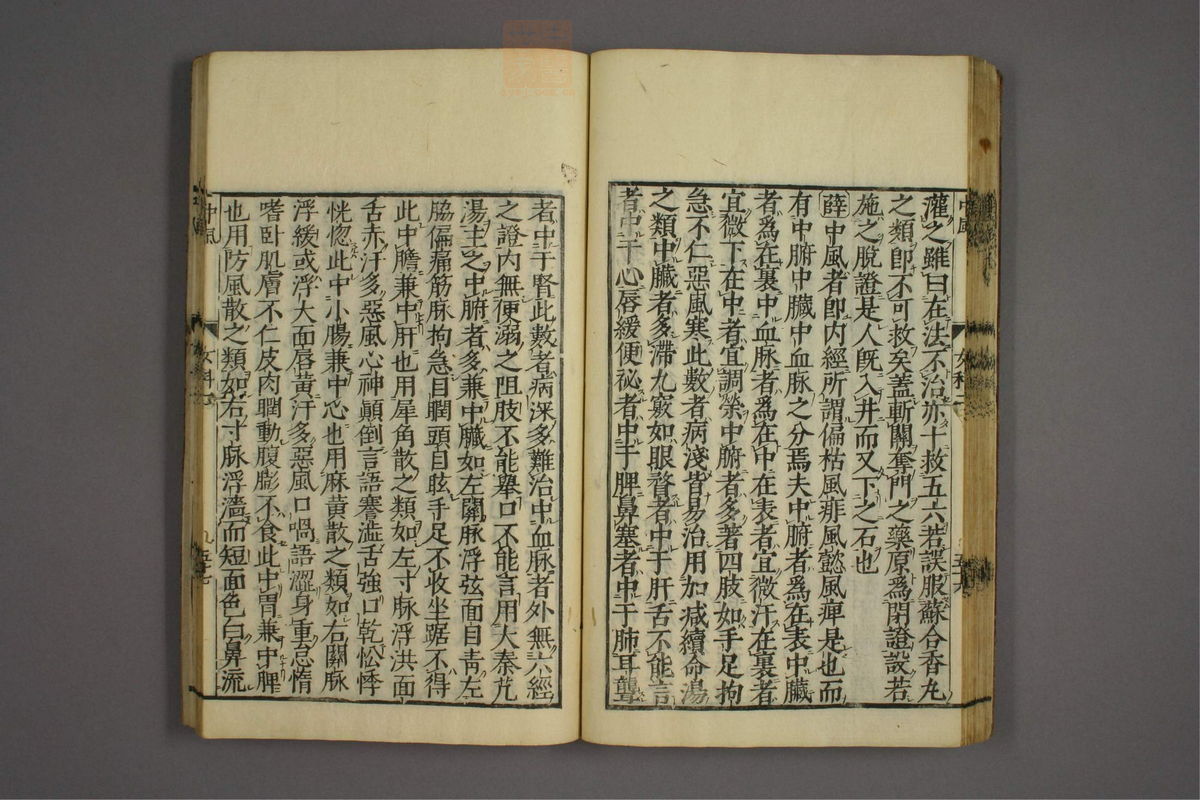 灌之雖曰在法不治亦十救五六若誤服蘇合香丸
之類卽不可救矣盖斬關奪門之藥原爲閉證設若
施之脫證是人旣入井而又下之石也
薛中風者卽內經所謂偏枯風痱風懿風痺是也而
有中腑中臟中血脉之分焉夫中腑者爲在表中臟
者爲在裏中血脉者爲在中在表者宜微汗在裏者
宜微下在中者宜調榮中腑者多著四肢如手足拘
急不仁惡風寒此數者病淺皆易治用加减續命湯
之類中臟者多滯九竅如眼瞀者中于肝舌不能言
者中于心唇緩便祕者中于脾鼻塞者中于肺耳聾
者中于腎此數者病深多難治中血脉者外無六經
之證內無便溺之阻肢不能舉口不能言用大秦艽
湯主之中腑者多兼中臟如左關脉浮弦面目靑左
脇偏痛筋脉拘急目瞤頭目眩手足不收坐踞不得
此中膽兼中肝也用犀角散之類如左寸脉浮洪面
舌赤汗多惡風心神顚倒言語蹇澁舌強口乾忪悸
恍惚此中小腸兼中心也用麻黃散之類如右關脉
浮緩或浮大面唇黃汗多惡風口喎語澀身重怠惰
嗜卧肌膚不仁皮肉瞤動腹膨不食此中胃兼中脾
也用防風散之類如右寸脉浮濇而短面色白鼻流